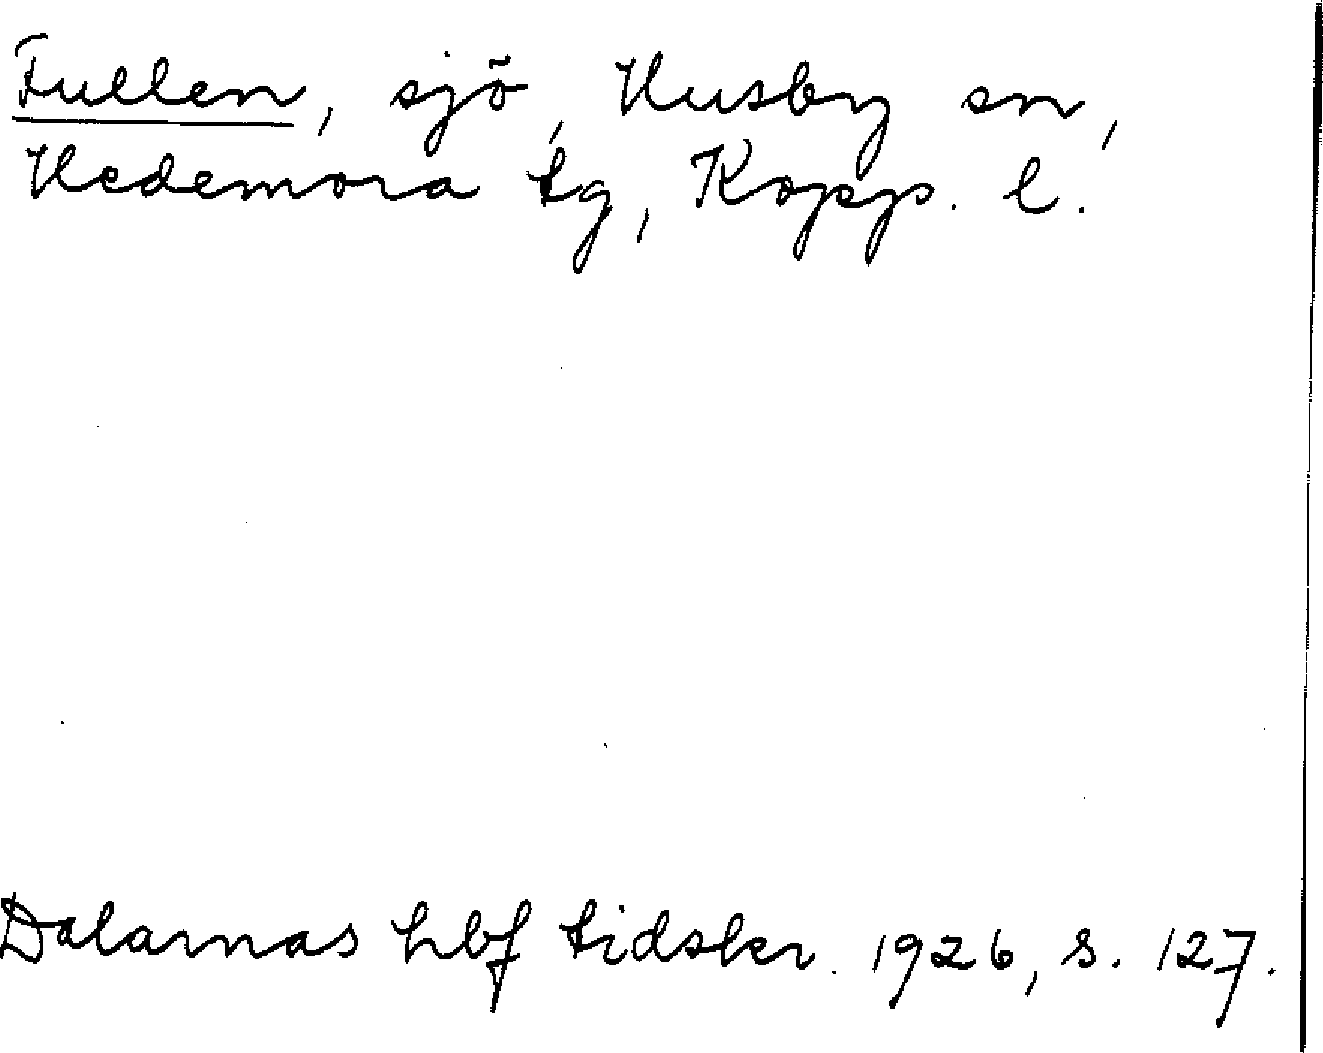 Fullen, sjö, Husby sn,
Hedemora tg, Kopp. l.
Dalarnas hbf tidskr. 1926, s. 127.